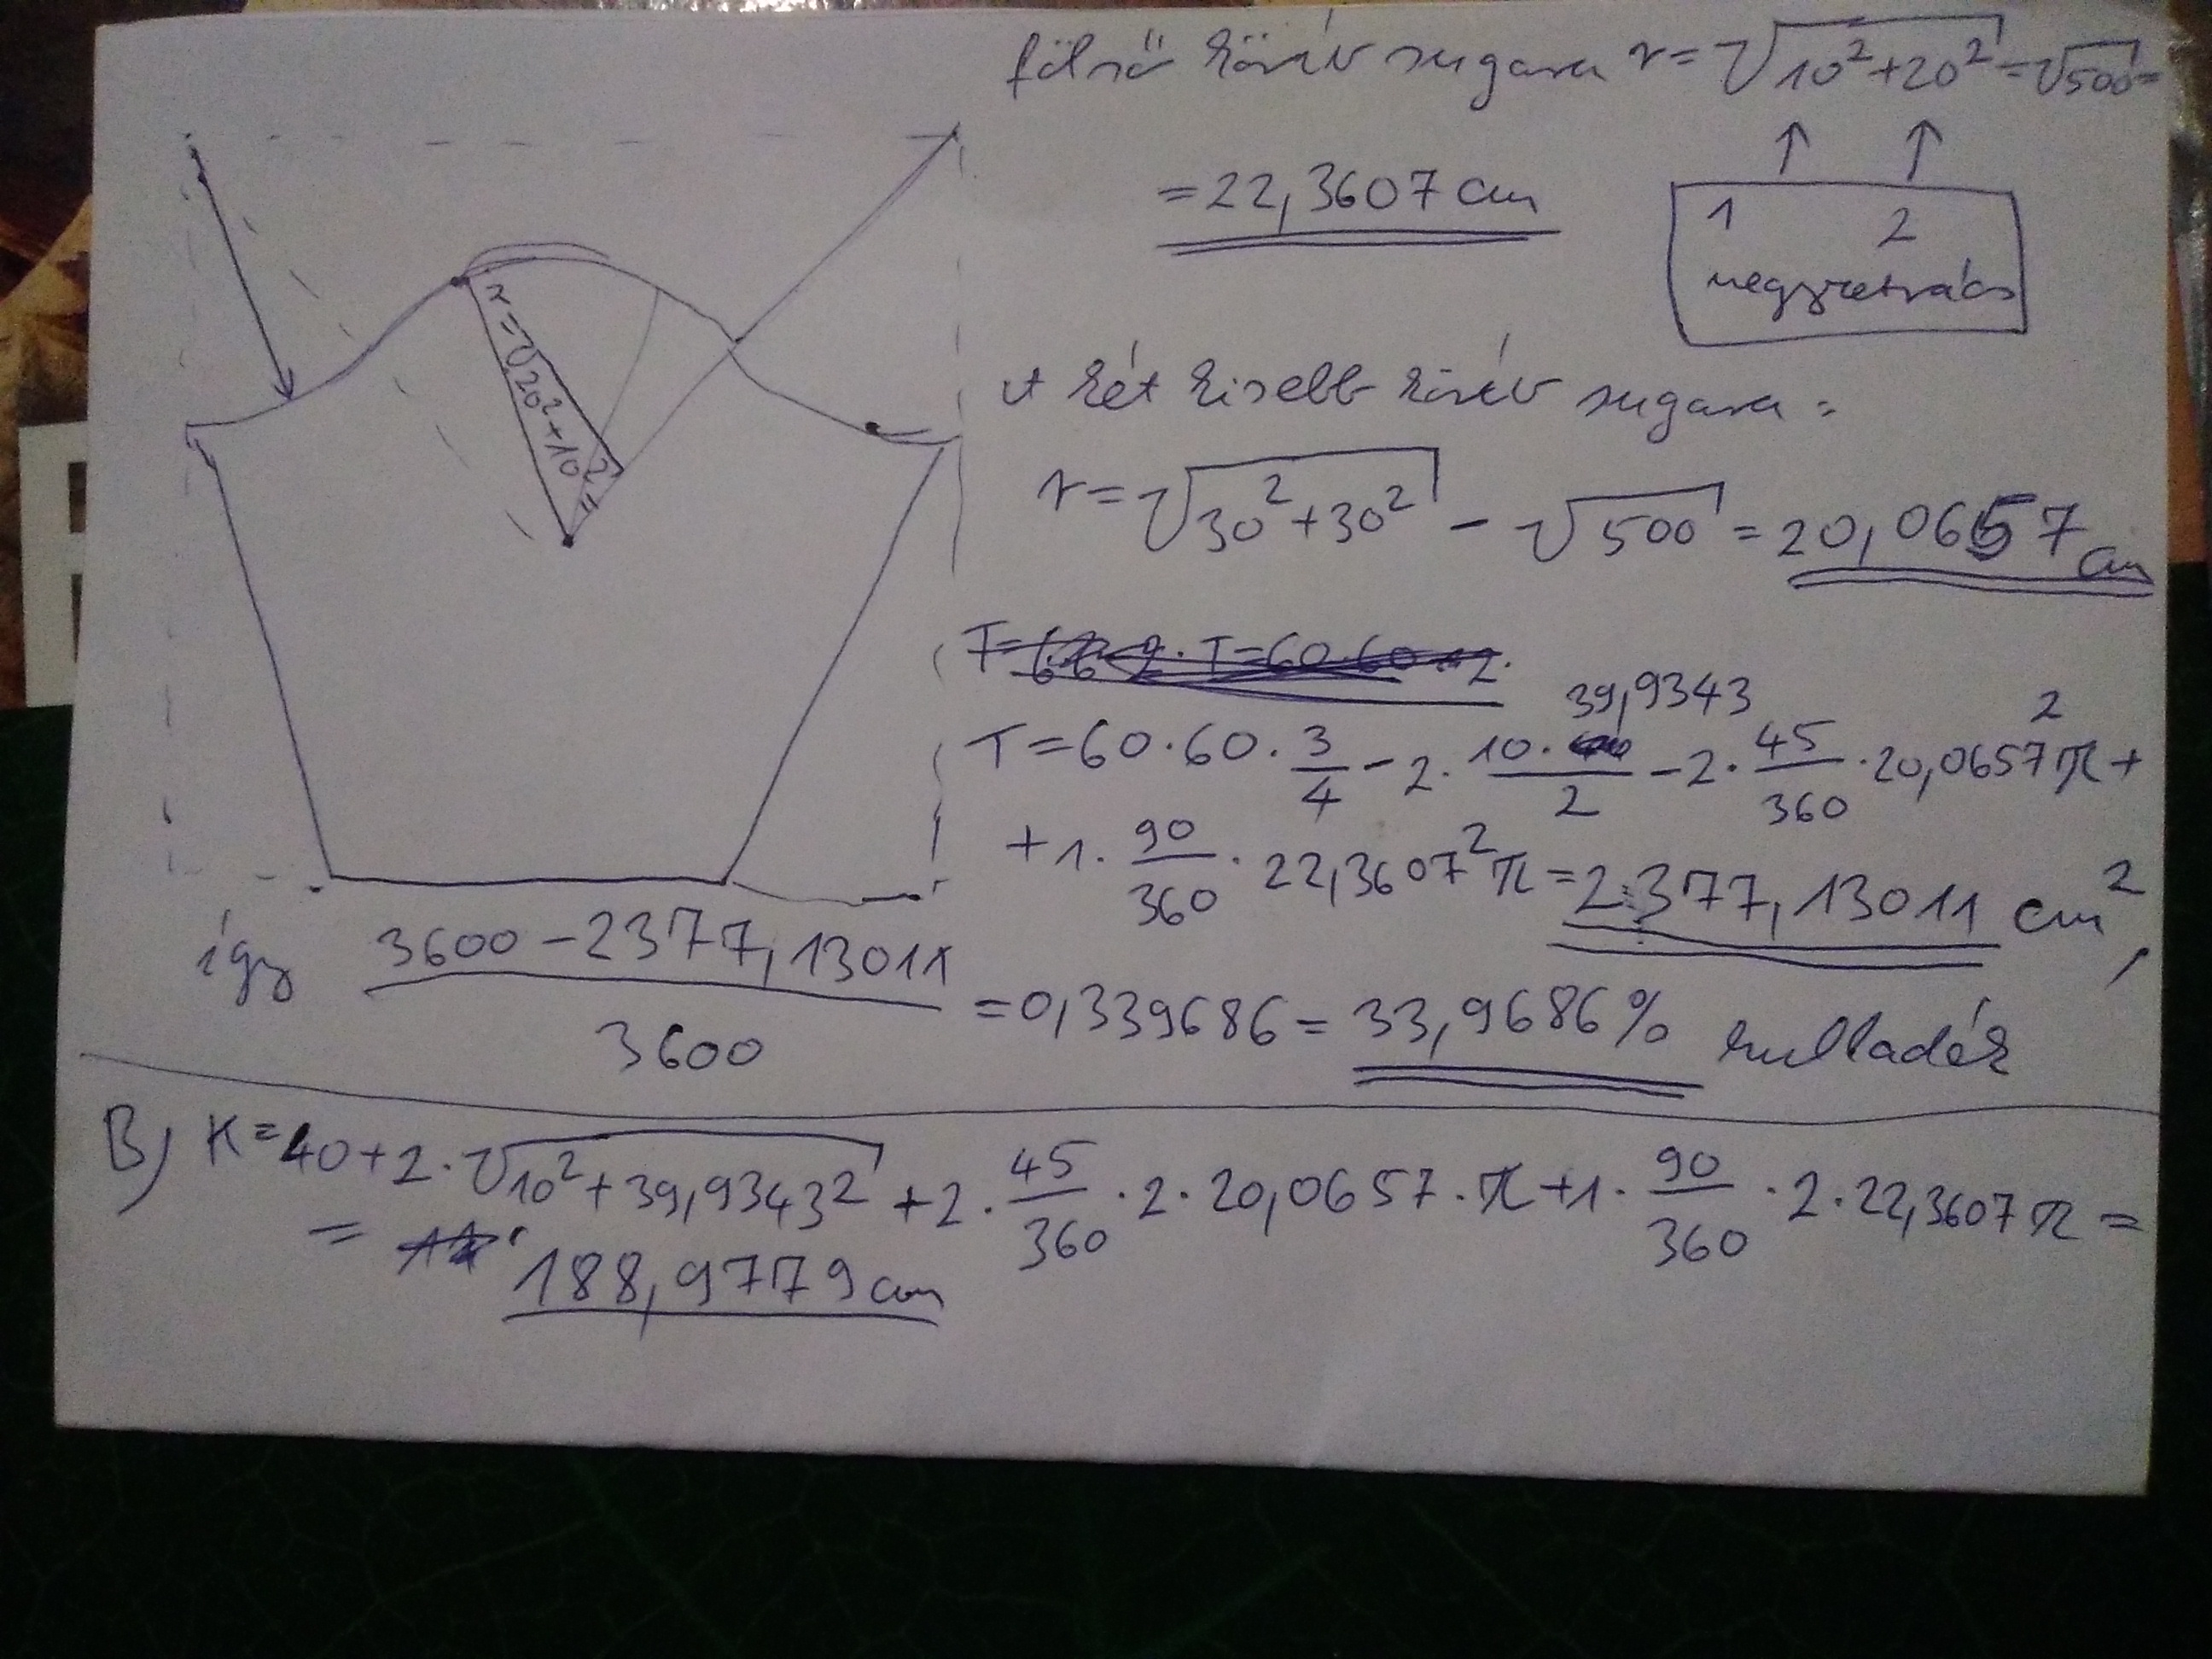 fölső körív sugara r = √10²+20² = √500 =
= 22,3607 cm
1 2
négyzetrács
r = √20²+10²
a két kisebb körív sugara =
r = √30²+30² - √500 = 20,0657 cm
T = 60·60·3/4 - 2·10·39,9343/2 - 2·45/360·20,0657²π +
+ 1·90/360·22,3607²π = 2377,13011 cm²,
így 3600 - 2377,13011/3600 = 0,339686 = 33,9686% hulladék
B) K = 40 + 2·√10²+39,9343² + 2·45/360·2·20,0657·π + 1·90/360·2·22,3607π =
= 188,9779 cm